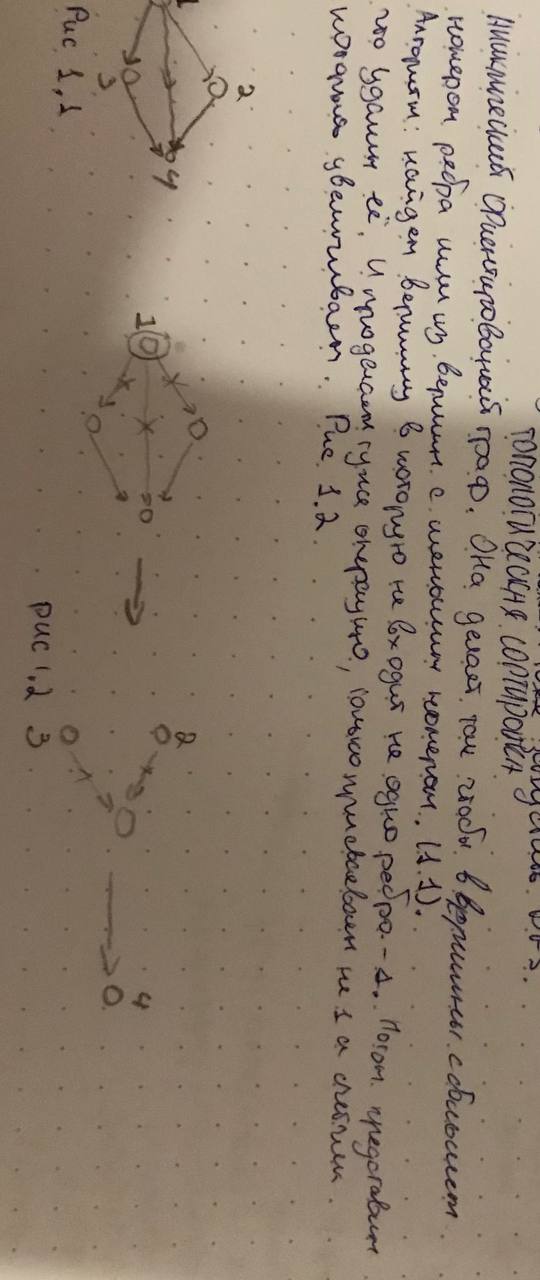 тоже запустить DFS.
ТОПОЛОГИЧЕСКАЯ СОРТИРОВКА
Ациклический Ориентированный граф. Она делает так чтобы в вершины с большим
номером ребра шли из вершин с меньшим номером. (1.1).
Алгоритм: найдем вершину в которую не входит не одно ребро - 1. Потом представим
что удалим её, и проделаем ту же операцию, только присваиваем не 1 а счетчик
который увеличиваем. Рис 1.2.
1
2
3
4
Рис 1,1
1
рис 1.2
2
3
4